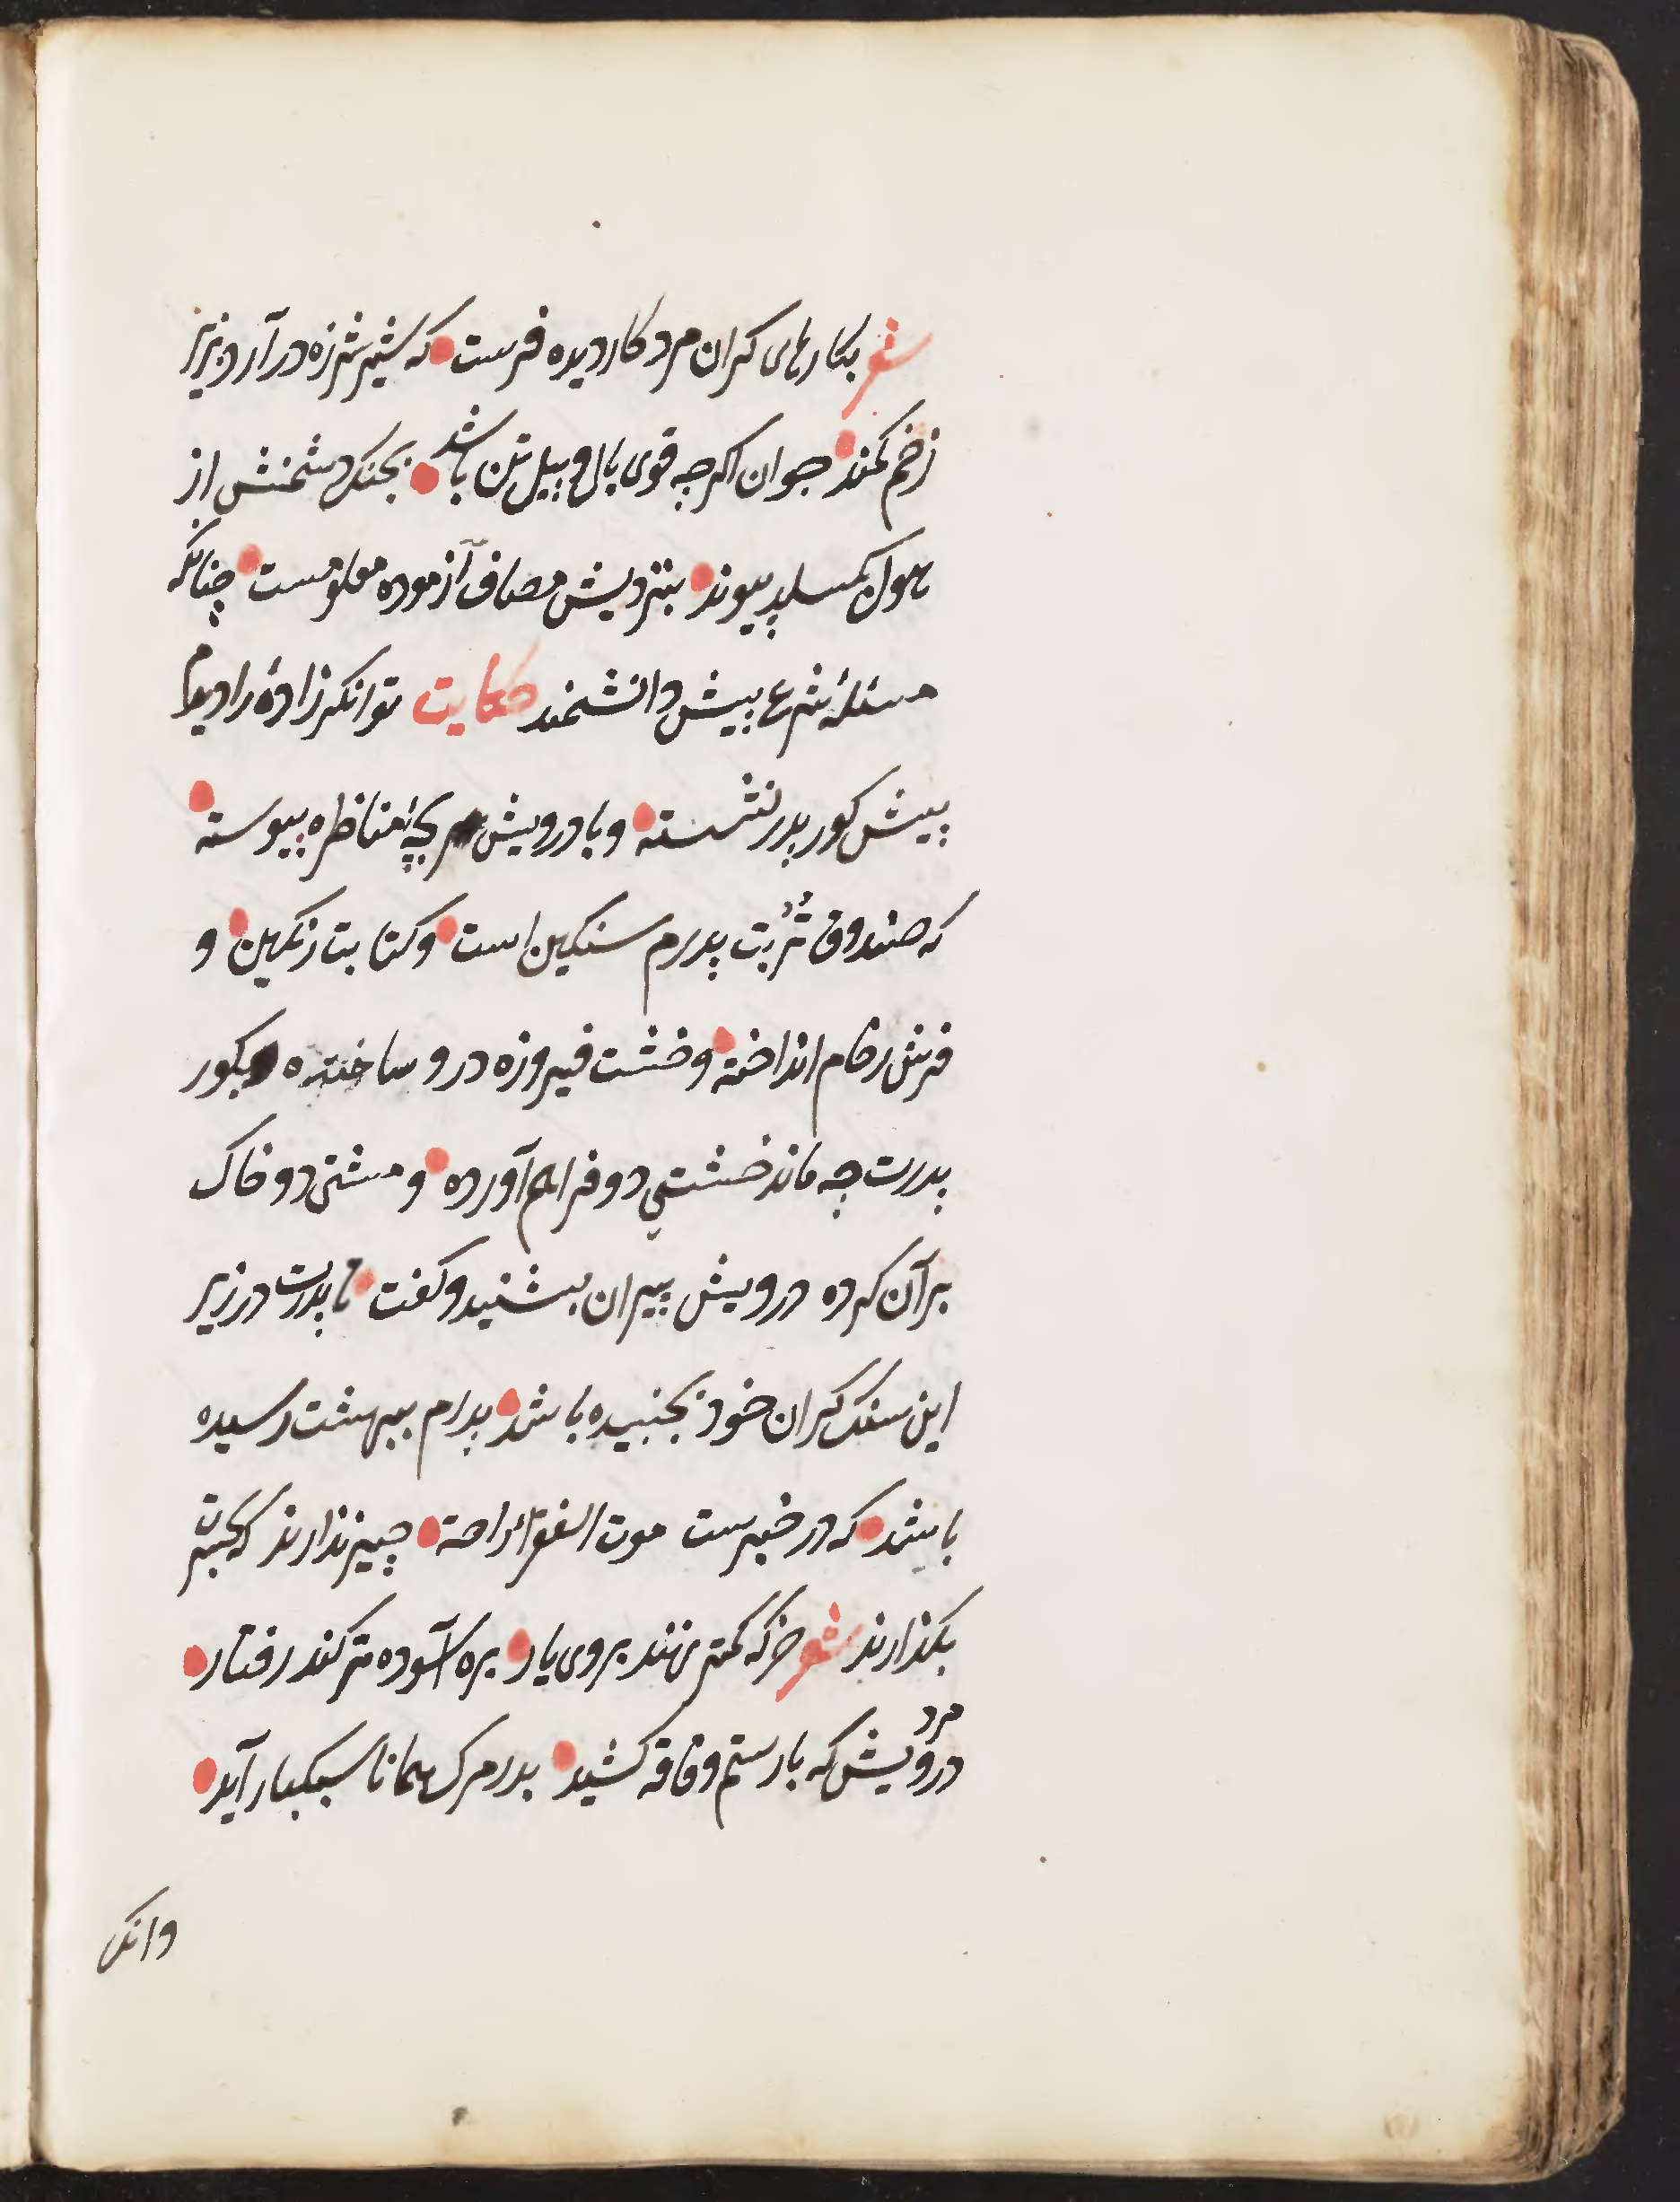 شعر بکارهای کران مرد کاردیده فرست که شیر شرزه در آرد بزیر
زخم کمند جوان اکرچه قوی بال و پیل تن باشد بجنک دشمنش از
هول بکسلد پیوند نبرد پیش مصاف آزموده معلومست چنانکه
مسئلهٔ شرع پیش دانشمند حکایت توانکر زادهٔ را دیدم
پیش کور پدر نشسته و با درویش بچهٔ مناظره پیوسته
که صندوق تربت پدرم سنکین است و کتابت رنکین و
فرش رخام انداخته و خشت فیروزه درو ساخته بکور
پدرت چه ماند خشتی دو فراهم آورده و مشتی دو خاک
بر آن کرده درویش پسر آن بشنید و کفت تا پدرت در زیر
این سنک کران خود بجنبیده باشد پدرم ببهشت رسیده
باشد که در خبرست موت الفقراء راحة چیز ندارند که بحسرت
بکذارند شعر خر که کمتر نهند بروی بار بره آسوده تر کند رفتار
مرد درویش که بار ستم و فاقه کشید بدر مرک همانا سبکبار آید
وانکه